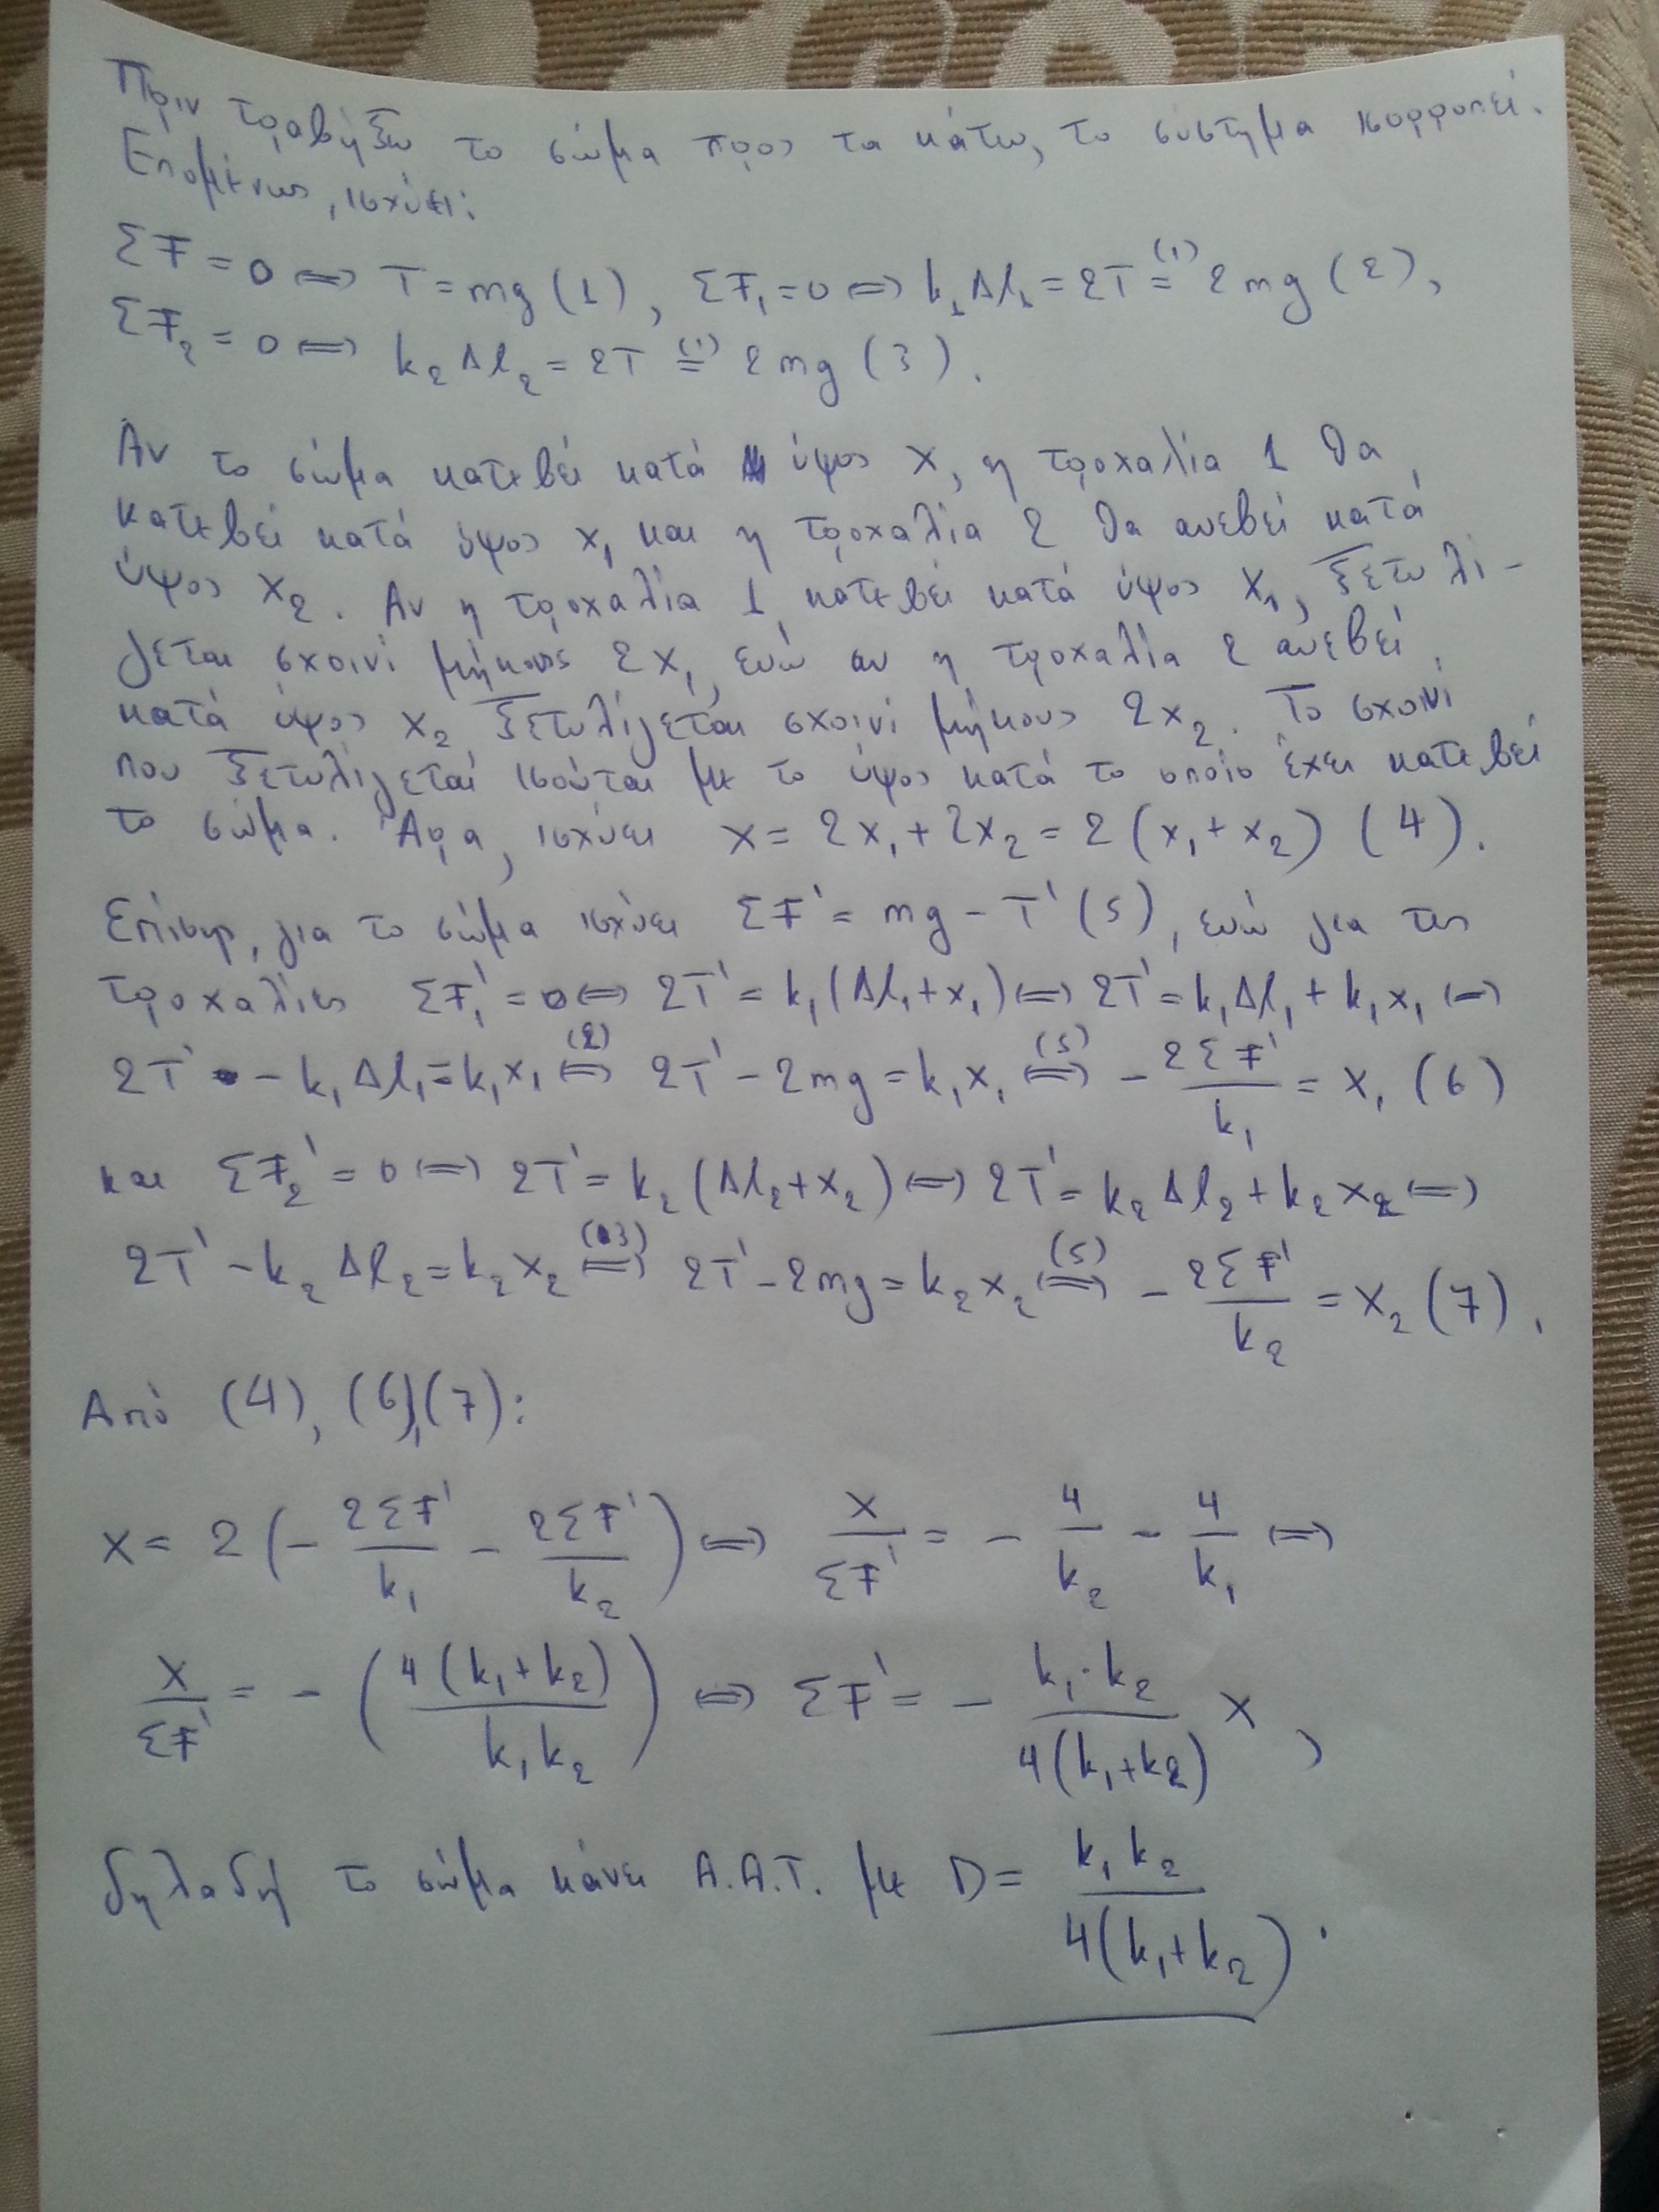 Πριν τραβήξω το σώμα προς τα κάτω, το σύστημα ισορροπεί.
Επομένως, ισχύει:
ΣF = 0 ⇔ T = mg (1), ΣF₁ = 0 ⇔ k₁Δl₁ = 2T =⁽¹⁾ 2mg (2),
ΣF₂ = 0 ⇔ k₂Δl₂ = 2T =⁽¹⁾ 2mg (3).
Αν το σώμα κατεβεί κατά ύψος x, η τροχαλία 1 θα
κατεβεί κατά ύψος x₁ και η τροχαλία 2 θα ανεβεί κατά
ύψος x₂. Αν η τροχαλία 1 κατεβεί κατά ύψος x₁, ξετυλί-
γεται σχοινί μήκους 2x₁, ενώ αν η τροχαλία 2 ανεβεί
κατά ύψος x₂ ξετυλίγεται σχοινί μήκους 2x₂. Το σχοινί
που ξετυλίγεται ισούται με το ύψος κατά το οποίο έχει κατεβεί
το σώμα. Άρα, ισχύει x = 2x₁ + 2x₂ = 2(x₁ + x₂) (4).
Επίσης, για το σώμα ισχύει ΣF' = mg - T' (5), ενώ για τις
τροχαλίες ΣF₁' = 0 ⇔ 2T' = k₁(Δl₁ + x₁) ⇔ 2T' = k₁Δl₁ + k₁x₁ ⇔
2T' - k₁Δl₁ = k₁x₁ ⇔⁽²⁾ 2T' - 2mg = k₁x₁ ⇔⁽⁵⁾ - 2ΣF'/k₁ = x₁ (6)
και ΣF₂' = 0 ⇔ 2T' = k₂(Δl₂ + x₂) ⇔ 2T' = k₂Δl₂ + k₂x₂ ⇔
2T' - k₂Δl₂ = k₂x₂ ⇔⁽³⁾ 2T' - 2mg = k₂x₂ ⇔⁽⁵⁾ - 2ΣF'/k₂ = x₂ (7).
Από (4), (6), (7):
x = 2(- 2ΣF'/k₁ - 2ΣF'/k₂) ⇔ x/ΣF' = - 4/k₂ - 4/k₁ ⇔
x/ΣF' = - (4(k₁ + k₂)/k₁k₂) ⇔ ΣF' = - k₁·k₂/4(k₁+k₂) x,
δηλαδή το σώμα κάνει Α.Α.Τ. με D = k₁k₂/4(k₁+k₂).